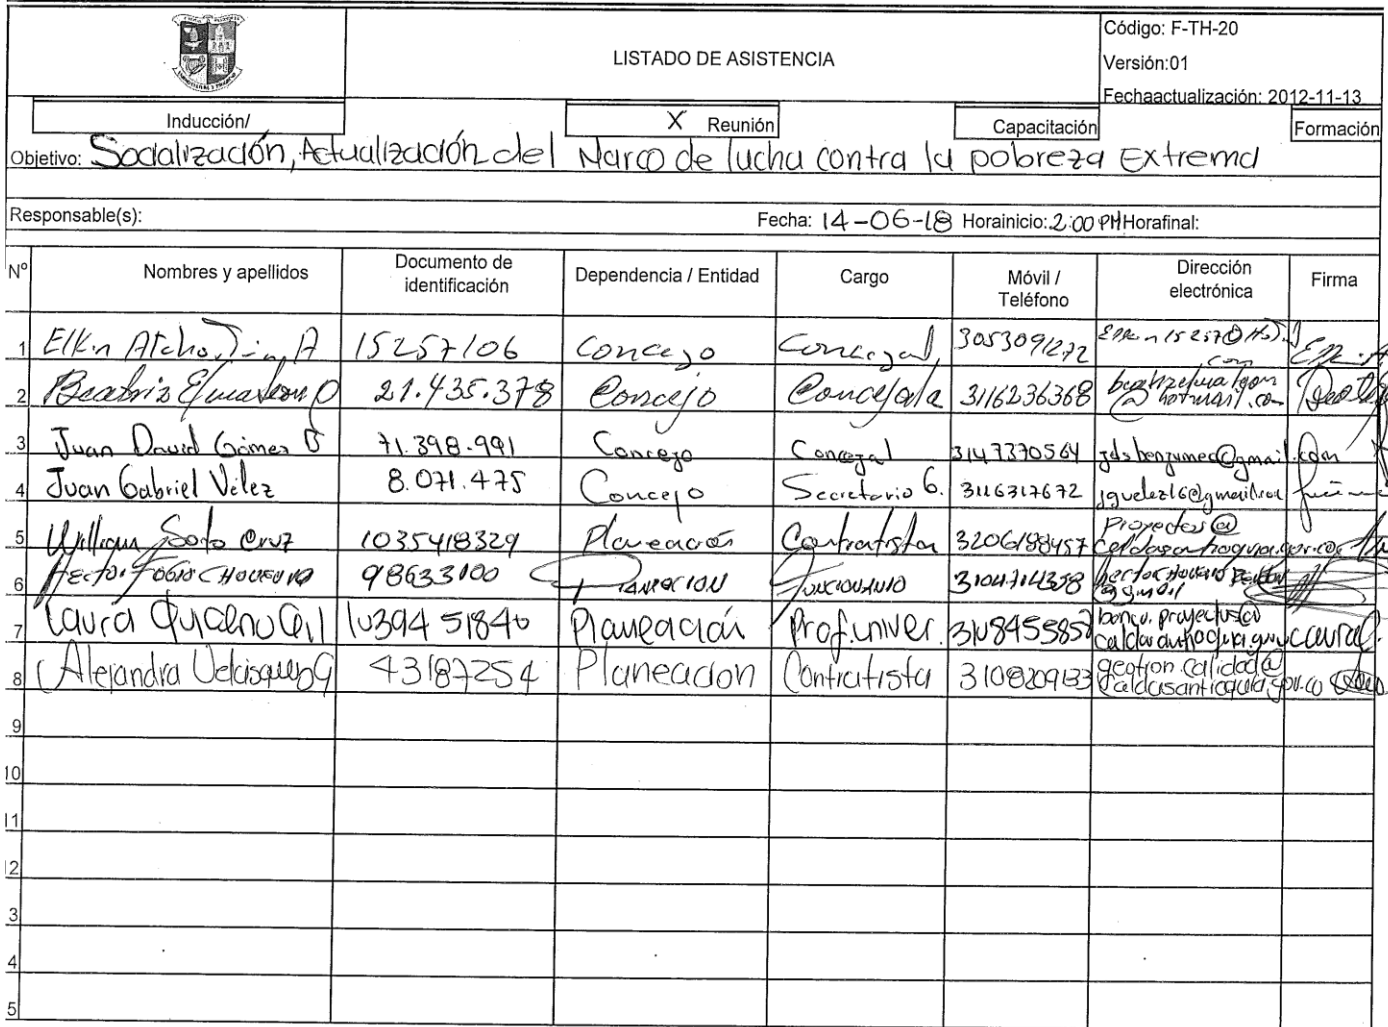 LISTADO DE ASISTENCIA
Código: F-TH-20
Versión:01
Fechaactualización: 2012-11-13
Inducción/
X Reunión
Capacitación
Formación
Objetivo: Socialización, Actualización del Marco de lucha contra la pobreza Extrema
Responsable(s):
Fecha: 14-06-18 Horainicio: 2:00 PM Horafinal:
Nº Nombres y apellidos Documento de identificación Dependencia / Entidad Cargo Móvil / Teléfono Dirección electrónica Firma
1 Elkin A 15257106 Concejo Concejal 3053091272
2 Beatriz 21.435.378 Concejo Concejala 3116236368 hotmail.com
3 Juan David Gómez B 71.398.991 Concejo Concejal 3147370564 jdsbenjumea@gmail.com
4 Juan Gabriel Vélez 8.071.475 Concejo Secretario G. 3116317672 jgvelez16@gmail.com
5 William Soto Cruz 1035418329 Planeación Contratista 3206188457 proyectos@caldasantioquia.gov.co
6 Hector Fabio 98633100 Planeacion Funcionario 3104714358
7 Laura Gil 1039451840 Planeación Prof. univer. 3108455857 banco.proyectos@caldasantioquia.gov.co Laura
8 Alejandra Velásquez G 43187254 Planeacion Contratista 3108209133 gestion.calidad@caldasantioquia.gov.co
9
10
11
12
3
4
5